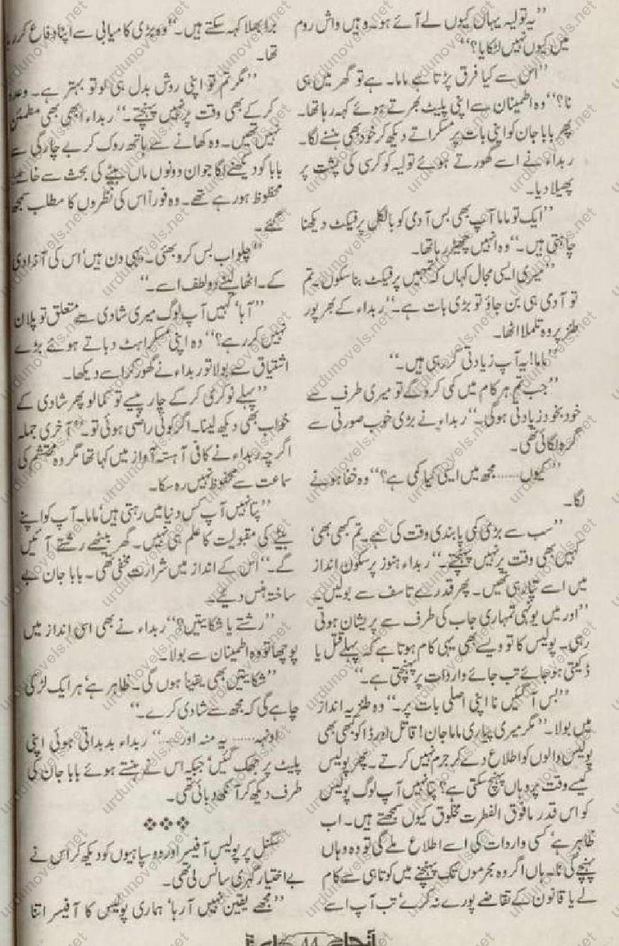 ”یہ تولیہ یہاں کیوں لے آئے ہو۔ وہیں واش روم
میں کیوں نہیں لٹکایا؟“
”اس سے کیا فرق پڑتا ہے ماما۔ ہے تو گھر میں ہی
نا؟“ وہ اطمینان سے اپنی پلیٹ بھرتے ہوئے کہہ رہا تھا۔
پھر بابا جان کو اپنی بات پر مسکراتے دیکھ کر خود بھی ہنسنے لگا۔
ربداء نے اسے گھورتے ہوئے تولیہ کو کرسی کی پشت پر
پھیلا دیا۔
”ایک تو ماما آپ بھی بس آدمی کو بالکل پرفیکٹ دیکھنا
چاہتی ہیں۔“ وہ انہیں چھیڑ رہا تھا۔
”میری ایسی مجال کہاں کہ تمہیں پرفیکٹ بنا سکوں۔ تم
تو آدمی ہی بن جاؤ تو بڑی بات ہے۔“ ربداء کے بھرپور
طنز پر وہ تلملا اٹھا۔
”ماما! یہ آپ زیادتی کر رہی ہیں۔“
”جب تم ہر کام میں کمی کرو گے تو میری طرف سے
خود بخود زیادتی ہوگی۔“ ربداء نے بڑی خوب صورتی سے
گرہ لگائی تھی۔
”کیوں...... مجھ میں ایسی کیا کمی ہے؟“ وہ خفا ہونے
لگا۔
”سب سے بڑی کمی پابندی وقت کی ہے۔ تم کبھی بھی‘
کہیں بھی وقت پر نہیں پہنچتے۔“ ربداء ہنوز پرسکون انداز
میں اسے بتا رہی تھیں۔ پھر قدرے تاسف سے بولیں۔
”اور میں یونہی تمہاری جاب کی طرف سے پریشان ہوتی
رہی۔ پولیس کا تو ویسے بھی یہی کام ہوتا ہے کہ پہلے قتل یا
ڈکیتی ہو جائے تب جائے واردات پر پہنچتی ہے۔“
”بس آ گئیں نا اپنی اصلی بات پر۔“ وہ طنزیہ انداز
میں بولا۔ ”مگر میری پیاری ماما جان! قاتل اور ڈاکو کبھی بھی
پولیس والوں کو اطلاع دے کر جرم نہیں کرتے۔ پھر پولیس
کیسے وقت پر وہاں پہنچ سکتی ہے؟ پتا نہیں آپ لوگ پولیس
کو اس قدر مافوق الفطرت مخلوق کیوں سمجھتے ہیں۔ اب
ظاہر ہے‘ کسی واردات کی اسے اطلاع ملے گی تو وہ وہاں
پہنچے گی نا۔ ہاں اگر وہ مجرموں تک پہنچنے میں کوتاہی سے کام
لے یا قانون کے تقاضے پورے نہ کرے‘ تب آپ اسے
برا بھلا کہہ سکتے ہیں۔“ وہ بڑی کامیابی سے اپنا دفاع کر رہا
تھا۔
”مگر تم تو اپنی روش بدل ہی لو تو بہتر ہے۔ وعدہ
کر کے بھی وقت پر نہیں پہنچتے۔“ ربداء ابھی بھی مطمئن
نہیں تھیں۔ وہ کھانے سے ہاتھ روک کر بے چارگی سے
بابا کو دیکھنے لگا جو ان دونوں ماں بیٹے کی بحث سے خاصے
محظوظ ہو رہے تھے۔ وہ فوراً اس کی نظروں کا مطلب سمجھ
گئے۔
”چلو اب بس کرو بھئی۔ یہی دن ہیں‘ اس کی آزادی
کے۔ اٹھا لینے دو لطف اسے۔“
”آہا‘ کہیں آپ لوگ میری شادی سے متعلق تو پلان
نہیں کر رہے؟“ وہ اپنی مسکراہٹ دباتے ہوئے بڑے
اشتیاق سے بولا تو ربداء نے گھور کر اسے دیکھا۔
”پہلے نوکری کر کے چار پیسے تو کما لو پھر شادی کے
خواب بھی دیکھ لینا۔ اگر کوئی راضی ہوئی تو۔“ آخری جملہ
اگرچہ ربداء نے کافی آہستہ آواز میں کہا تھا مگر وہ محتشم کی
سماعت سے محفوظ نہیں رہ سکا۔
”پتا نہیں آپ کس دنیا میں رہتی ہیں‘ ماما۔ آپ کو اپنے
بیٹے کی مقبولیت کا علم ہی نہیں۔ گھر بیٹھے رشتے آئیں
گے۔“ اس کے انداز میں شرارت مخفی تھی۔ بابا جان بے
ساختہ ہنس دیئے۔
”رشتے یا شکایتیں؟“ ربداء نے بھی اسی انداز میں
پوچھا تو وہ اطمینان سے بولا۔
”شکایتیں بھی یقیناً ہوں گی۔ ظاہر ہے‘ ہر ایک لڑکی
چاہے گی کہ مجھ سے شادی کرے۔“
”اونہہ...... یہ منہ اور......“ ربداء بدبداتی ہوئی اپنی
پلیٹ پر جھک گئیں‘ جبکہ اس نے ہنستے ہوئے بابا جان کی
طرف دیکھ کر آنکھ دبائی تھی۔
❖❖❖
سگنل پر پولیس آفیسر اور دو سپاہیوں کو دیکھ کر اس نے
بے اختیار گہری سانس لی تھی۔
”مجھے یقین نہیں آ رہا‘ ہماری پولیس کا آفیسر اتنا
44